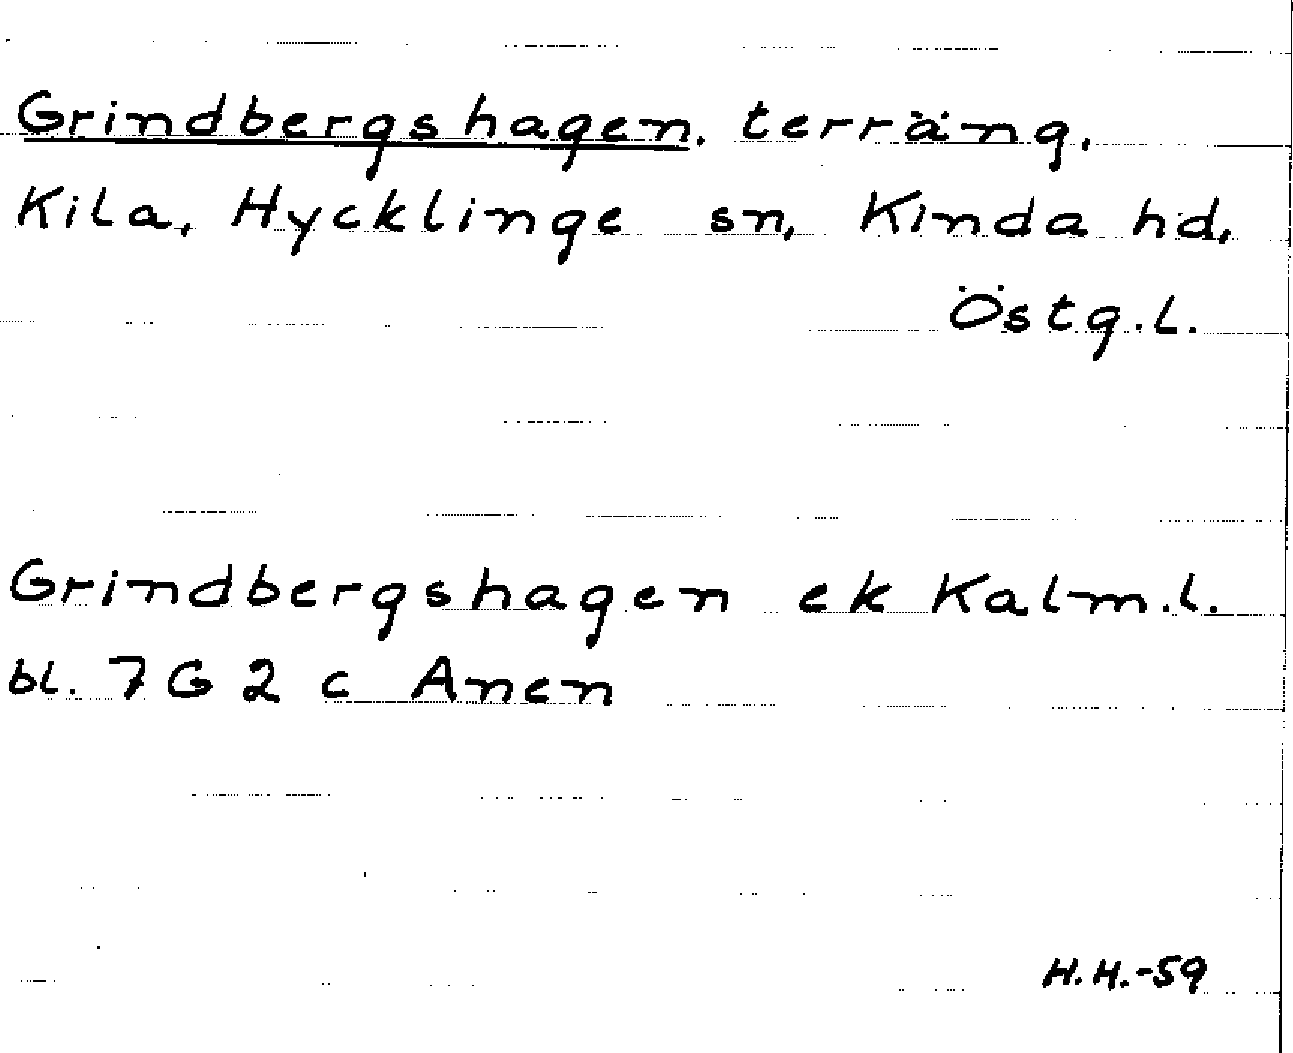 Grindbergshagen, terräng,
Kila, Hycklinge sn, Kinda hd,
Östg.l.
Grindbergshagen ek Kalm.l.
bl. 7 G 2 c Anen
H.H.-59